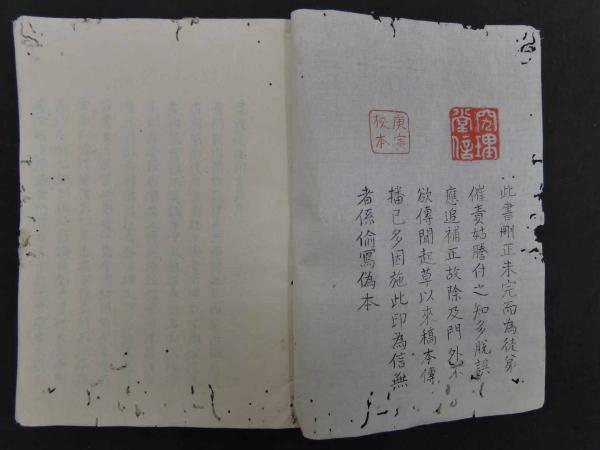 究理堂信
庚寅校本
此書刪正未完而為徒弟
催責姑謄付之知多脫誤
應追補正故除及門外不
欲傳聞起草以來稿本傳
播已多因施此印為信無
者係偷寫偽本